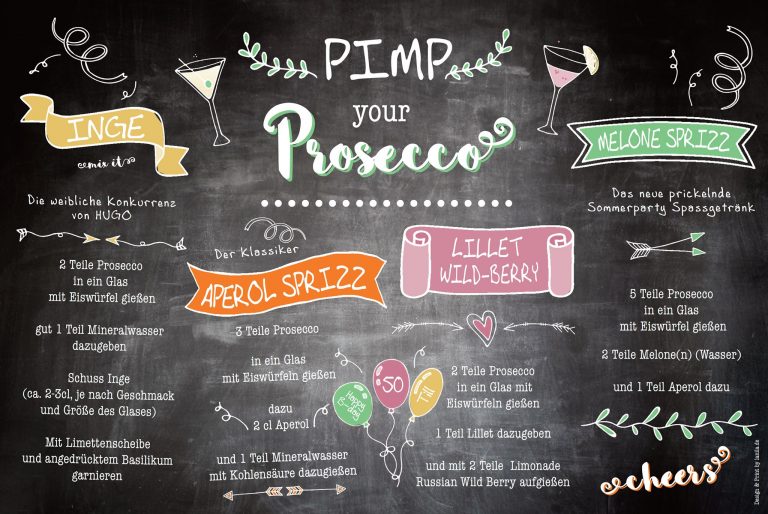 PIMP
your
Prosecco
INGE
mix it
Die weibliche Konkurrenz
von HUGO
2 Teile Prosecco
in ein Glas
mit Eiswürfel gießen
gut 1 Teil Mineralwasser
dazugeben
Schuss Inge
(ca. 2-3cl, je nach Geschmack
und Größe des Glases)
Mit Limettenscheibe
und angedrücktem Basilikum
garnieren
Der Klassiker
APEROL SPRIZZ
3 Teile Prosecco
in ein Glas
mit Eiswürfeln gießen
dazu
2 cl Aperol
und 1 Teil Mineralwasser
mit Kohlensäure dazugießen
Happy
B-day
50
LILLET
WILD-BERRY
2 Teile Prosecco
in ein Glas mit
Eiswürfeln gießen
1 Teil Lillet dazugeben
und mit 2 Teile Limonade
Russian Wild Berry aufgießen
MELONE SPRIZZ
Das neue prickelnde
Sommerparty Spassgetränk
5 Teile Prosecco
in ein Glas
mit Eiswürfel gießen
2 Teile Melone(n) (Wasser)
und 1 Teil Aperol dazu
cheers